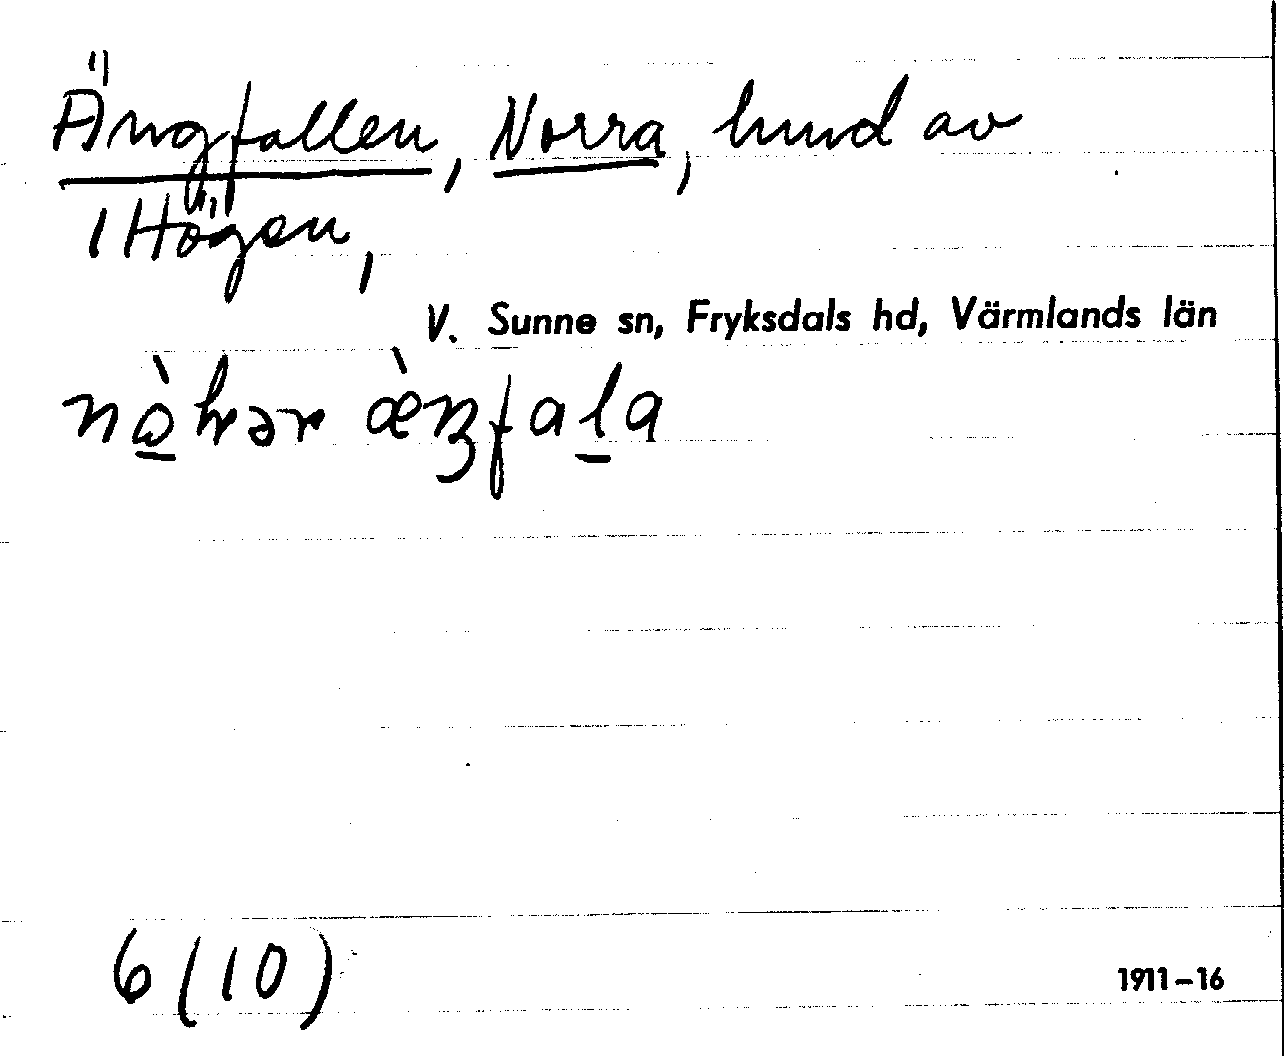 Ängfallen, Norra, hmd av
1 Högen,
V. Sunne sn, Fryksdals hd, Värmlands län
6 (10)
1911-16